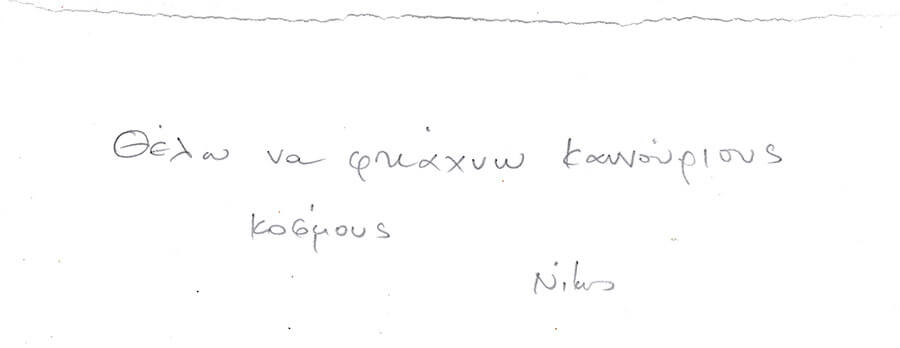 Θέλω να φτιάχνω καινούριους
κόσμους
Νίκος